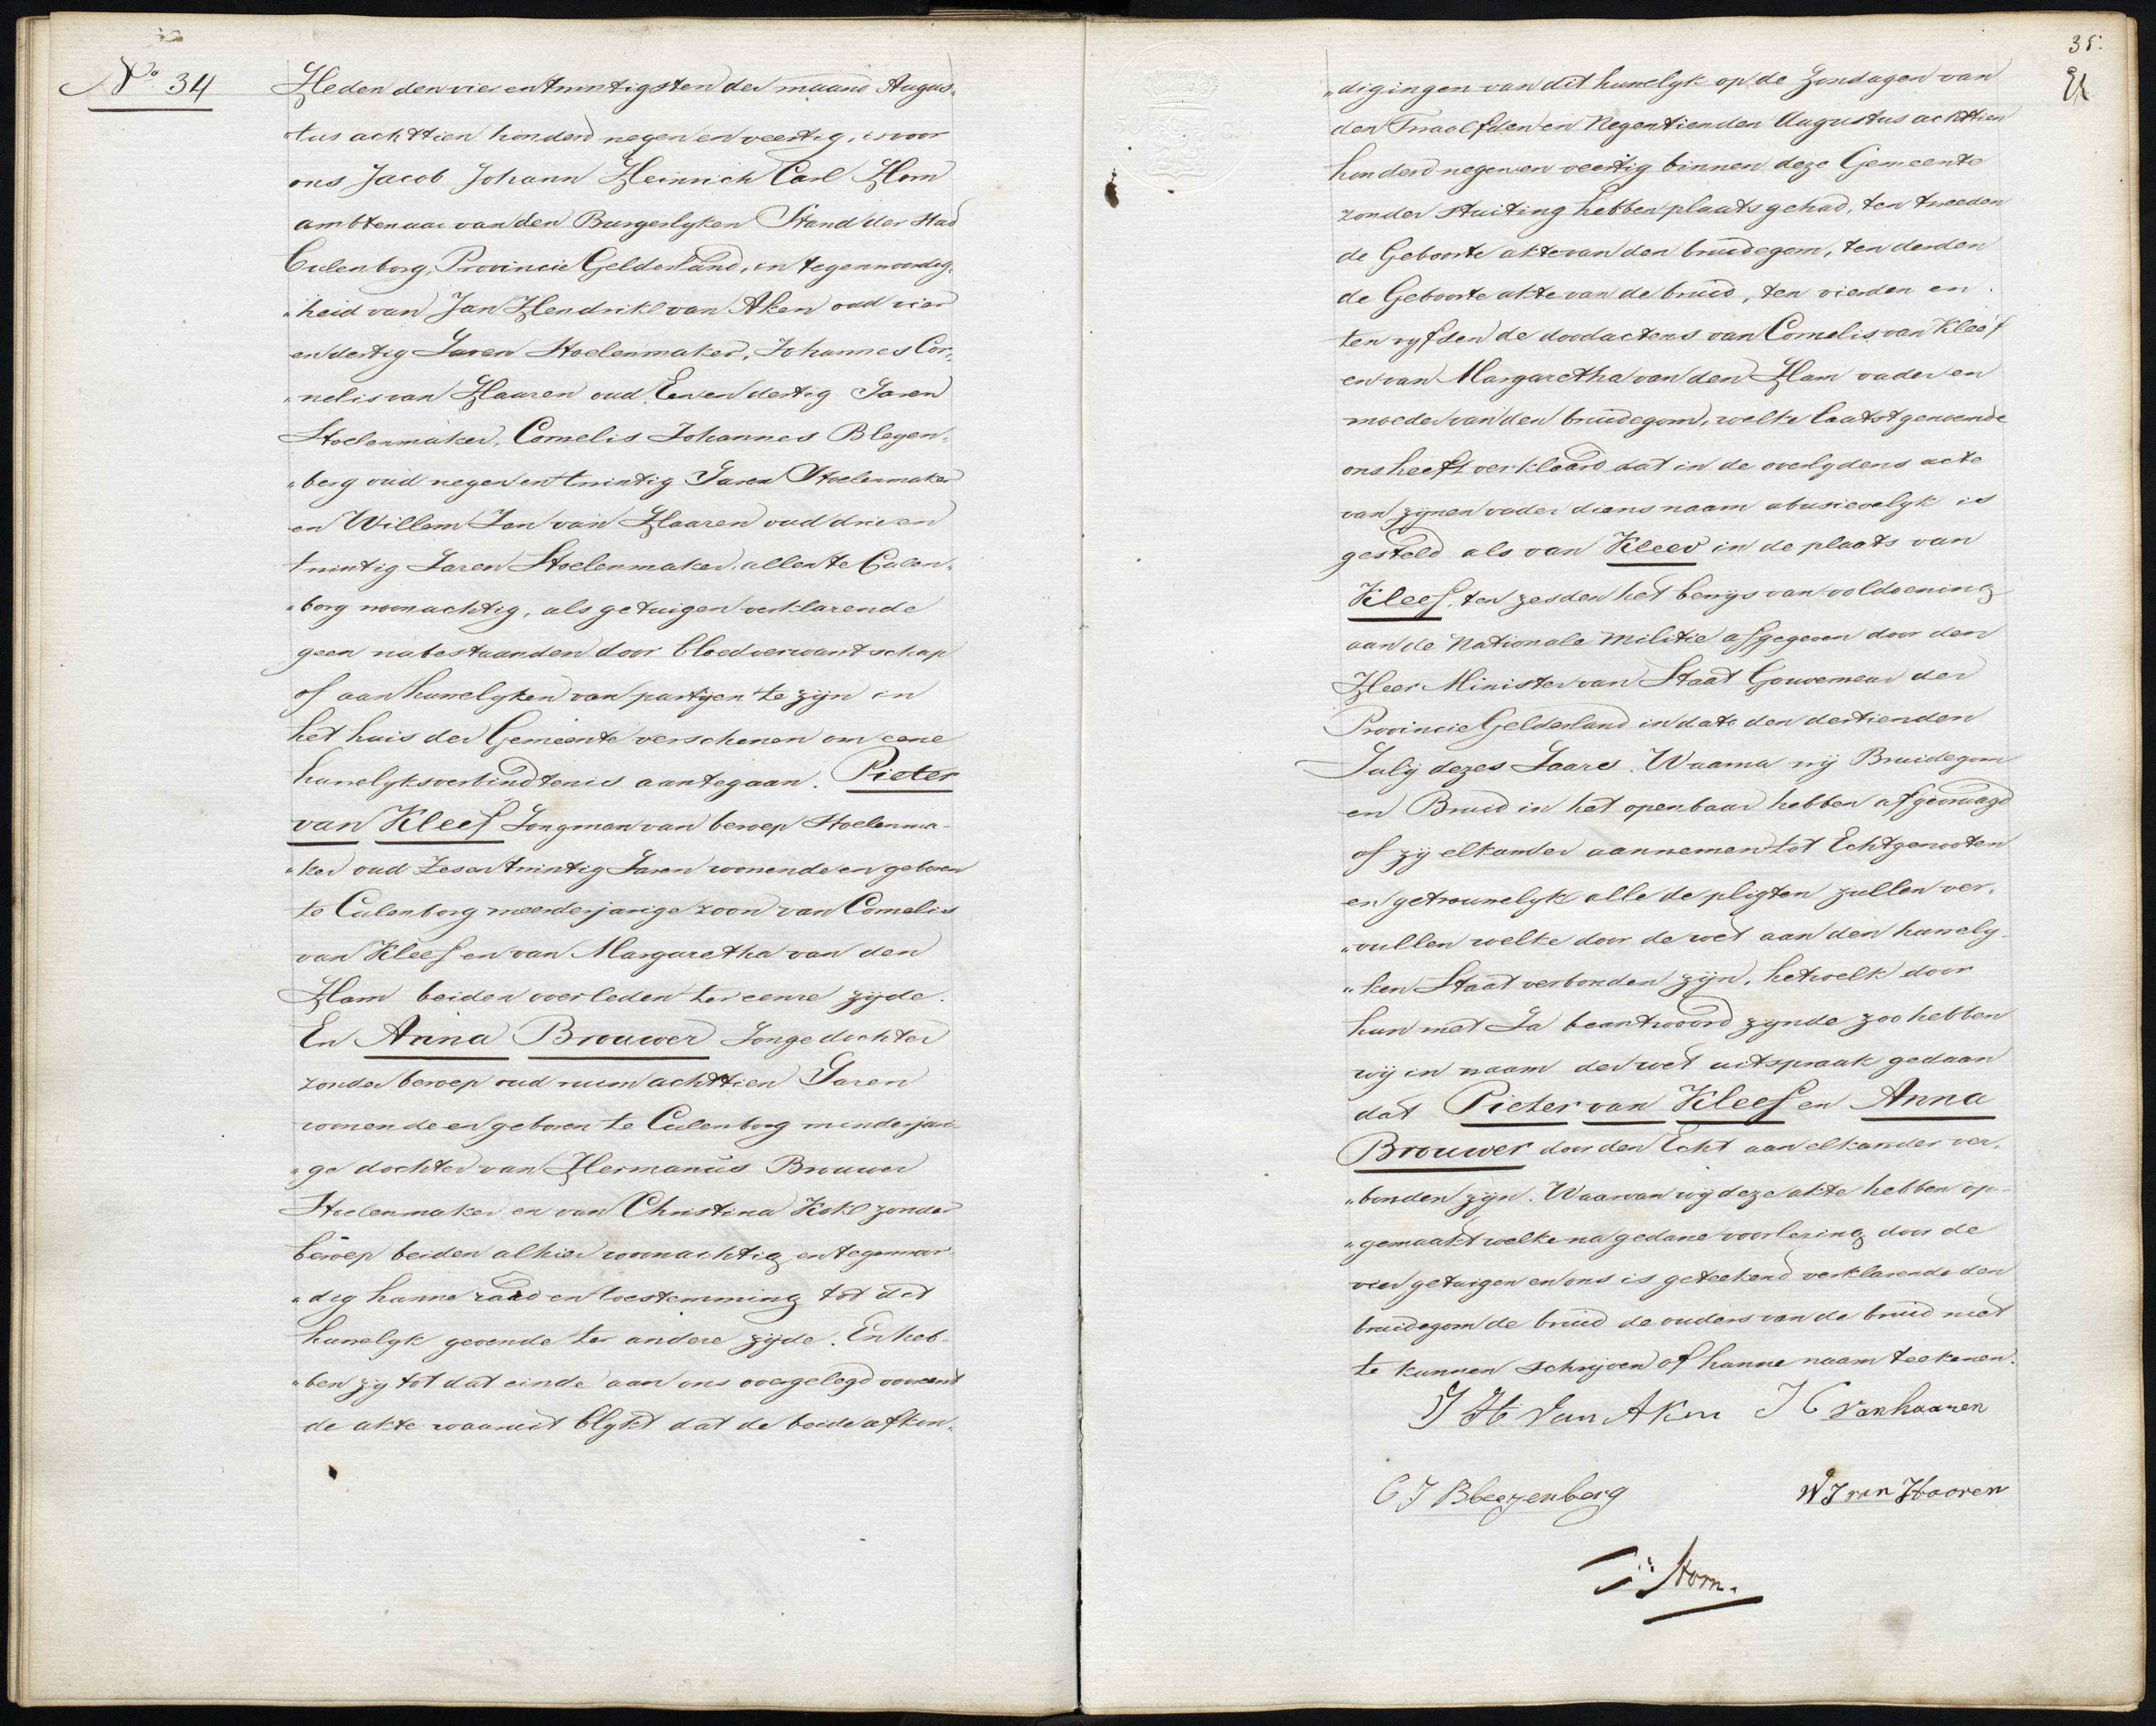 No. 34
Heden den vier en twintigsten der maand Augus„
„tus achttien honderd negen en veertig, is voor
ons Jacob Johann Heinrich Carl Hom
ambtenaar van den Burgerlyken Stand der Stad
Culenborg, Provincie Gelderland, in tegenwoordig„
„heid van Jan Hendrik van Aken oud vier
en dertig Jaren Stoelenmaker, Johannes Cor„
„nelis van Haaren oud Een en dertig Jaren
Stoelenmaker, Cornelis Johannes Blegen„
„berg oud negen en twintig Jaren Stoelenmaker
en Willem Jan van Haaren oud drie en
twintig Jaren Stoelenmaker, allen te Culen„
„borg woonachtig, als getuigen verklarende
geen nabestaanden door bloedverwantschap
of aanhuwelyken van partijen te zijn in
het huis der Gemeente verschenen om eene
huwelyksverbindtenis aantegaan. Pieter
van Kleef Jongman van beroep Stoelenma„
„ker oud Zes en twintig Jaren wonende en geboren
te Culenborg meerderjarige zoon van Cornelis
van Kleef en van Margaretha van den
Ham beiden overleden ter eenre zijde.
En Anna Brouwer Jonge dochter
zonder beroep oud ruim achttien Jaren
wonende en geboren te Culenborg minderjari„
„ge dochter van Hermanus Brouwer
Stoelenmaker en van Christina Kok zonder
beroep beiden alhier woonachtig en tegenwoor„
„dig hunne raad en toestemming tot dit
huwelyk gevende ter andere zijde. En heb„
„ben zy tot dat einde aan ons overgelegd vooreerst
de akte waaruit blykt dat de beide afkon„
35.
„digingen van dit huwelyk op de Zondagen van
den Twaalfden en Negentienden Augustus achttien
honderd negen en veertig binnen deze Gemeente
zonder stuiting hebben plaats gehad, ten tweeden
de Geboorte akte van den bruidegom, ten derden
de Geboorte akte van de bruid, ten vierden en
ten vyfden de doodactens van Cornelis van Kleef
en van Margaretha van den Ham vader en
moeder van den bruidegom, welke laatstgenoemde
ons heeft verklaard dat in de overlydens acte
van zijnen vader diens naam abusievelyk is
gesteld als van Kleev in de plaats van
Kleef, ten zesden het bewys van voldoening
aan de Nationale Militie afgegeven door den
Heer Minister van Staat Gouverneur der
Provincie Gelderland in dato den dertienden
July dezes Jaars. Waarna wij Bruidegom
en Bruid in het openbaar hebben afgevraagd
of zij elkander aannemen tot Echtgenooten
en getrouwelyk alle de pligten zullen ver„
„vullen welke door de wet aan den huwely„
„ken Staat verbonden zijn, hetwelk door
hun met Ja beantwoord zynde zoo hebben
wij in naam der wet uitspraak gedaan
dat Pieter van Kleef en Anna
Brouwer door den Echt aan elkander ver„
„bonden zijn. Waarvan wij deze akte hebben op„
„gemaakt welke na gedane voorlezing door de
vier getuigen en ons is geteekend verklarende den
bruidegom de bruid de ouders van de bruid niet
te kunnen schrijven of hunne naam teekenen.
J H Van Aken J C van haaren
C J Bleezenberg W J van Haaren
Hom.